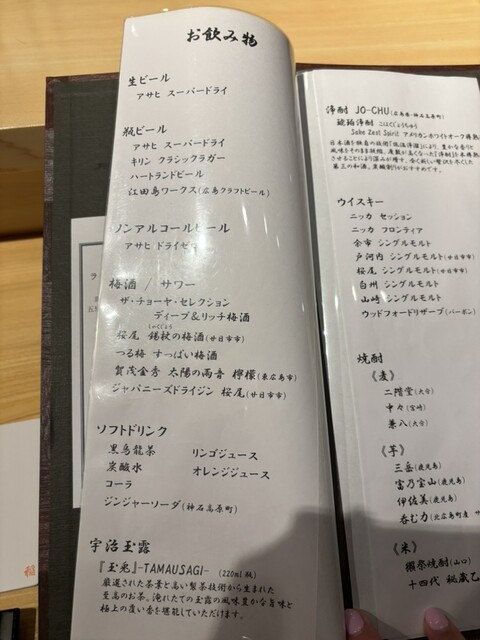 お飲み物
生ビール
アサヒ スーパードライ
瓶ビール
アサヒ スーパードライ
キリン クラシックラガー
ハートランドビール
江田島ワークス(広島クラフトビール)
ノンアルコールビール
アサヒ ドライゼロ
梅酒 / サワー
ザ・チョーヤ・セレクション
ディープ&リッチ梅酒
桜尾 錫杖の梅酒(廿日市市)
つる梅 すっぱい梅酒
賀茂金秀 太陽の雨音 檸檬(東広島市)
ジャパニーズドライジン 桜尾(廿日市市)
ソフトドリンク
黒烏龍茶 リンゴジュース
炭酸水 オレンジジュース
コーラ
ジンジャーソーダ(神石高原町)
宇治玉露
『玉兎』-TAMAUSAGI- (220ml瓶)
厳選された茶葉と高い製茶技術から生まれた
至高のお茶。淹れたての玉露の風味豊かな旨味と
極上の覆い香を堪能していただけます。
浄酎 JO-CHU(広島県・神石高原町)
琥珀浄酎 こはくじょうちゅう
Sake Zest Spirit アメリカンホワイトオーク樽熟
日本酒を独自の技術『低温浄溜』により、豊かな香りと
風味をそのまま凝縮。度数が高くなった『浄酎』を木樽熟
させることにより深みが増す、全く新しい贅沢を尽くした
第三の和酒。炭酸割りがおすすめです。
ウイスキー
ニッカ セッション
ニッカ フロンティア
余市 シングルモルト
戸河内 シングルモルト(廿日市市)
桜尾 シングルモルト(廿日市市)
白州 シングルモルト
山崎 シングルモルト
ウッドフォードリザーブ(バーボン)
焼酎
《麦》
二階堂(大分)
中々(宮崎)
兼八(大分)
《芋》
三岳(鹿児島)
富乃宝山(鹿児島)
伊佐美(鹿児島)
呑む力(北広島町産
《米》
獺祭焼酎(山口)
十四代 秘蔵乙